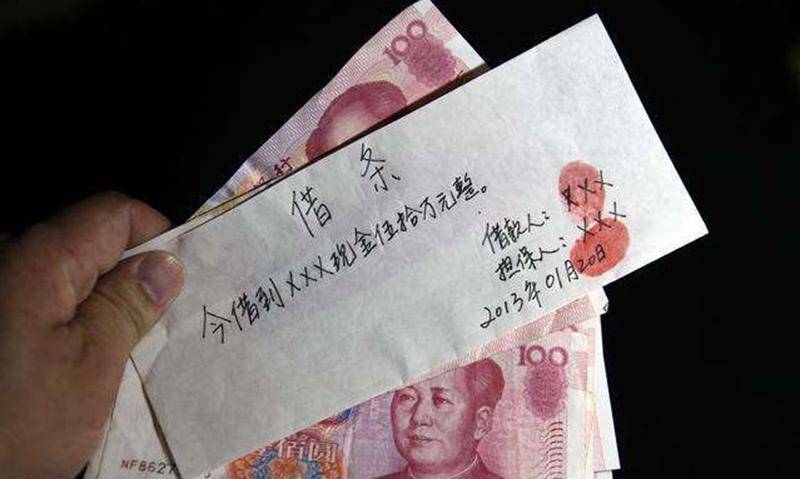 100
借条
今借到XXX现金伍拾万元整。
借款人:XXX
担保人:XXX
2013年01月20日
100
NF8627